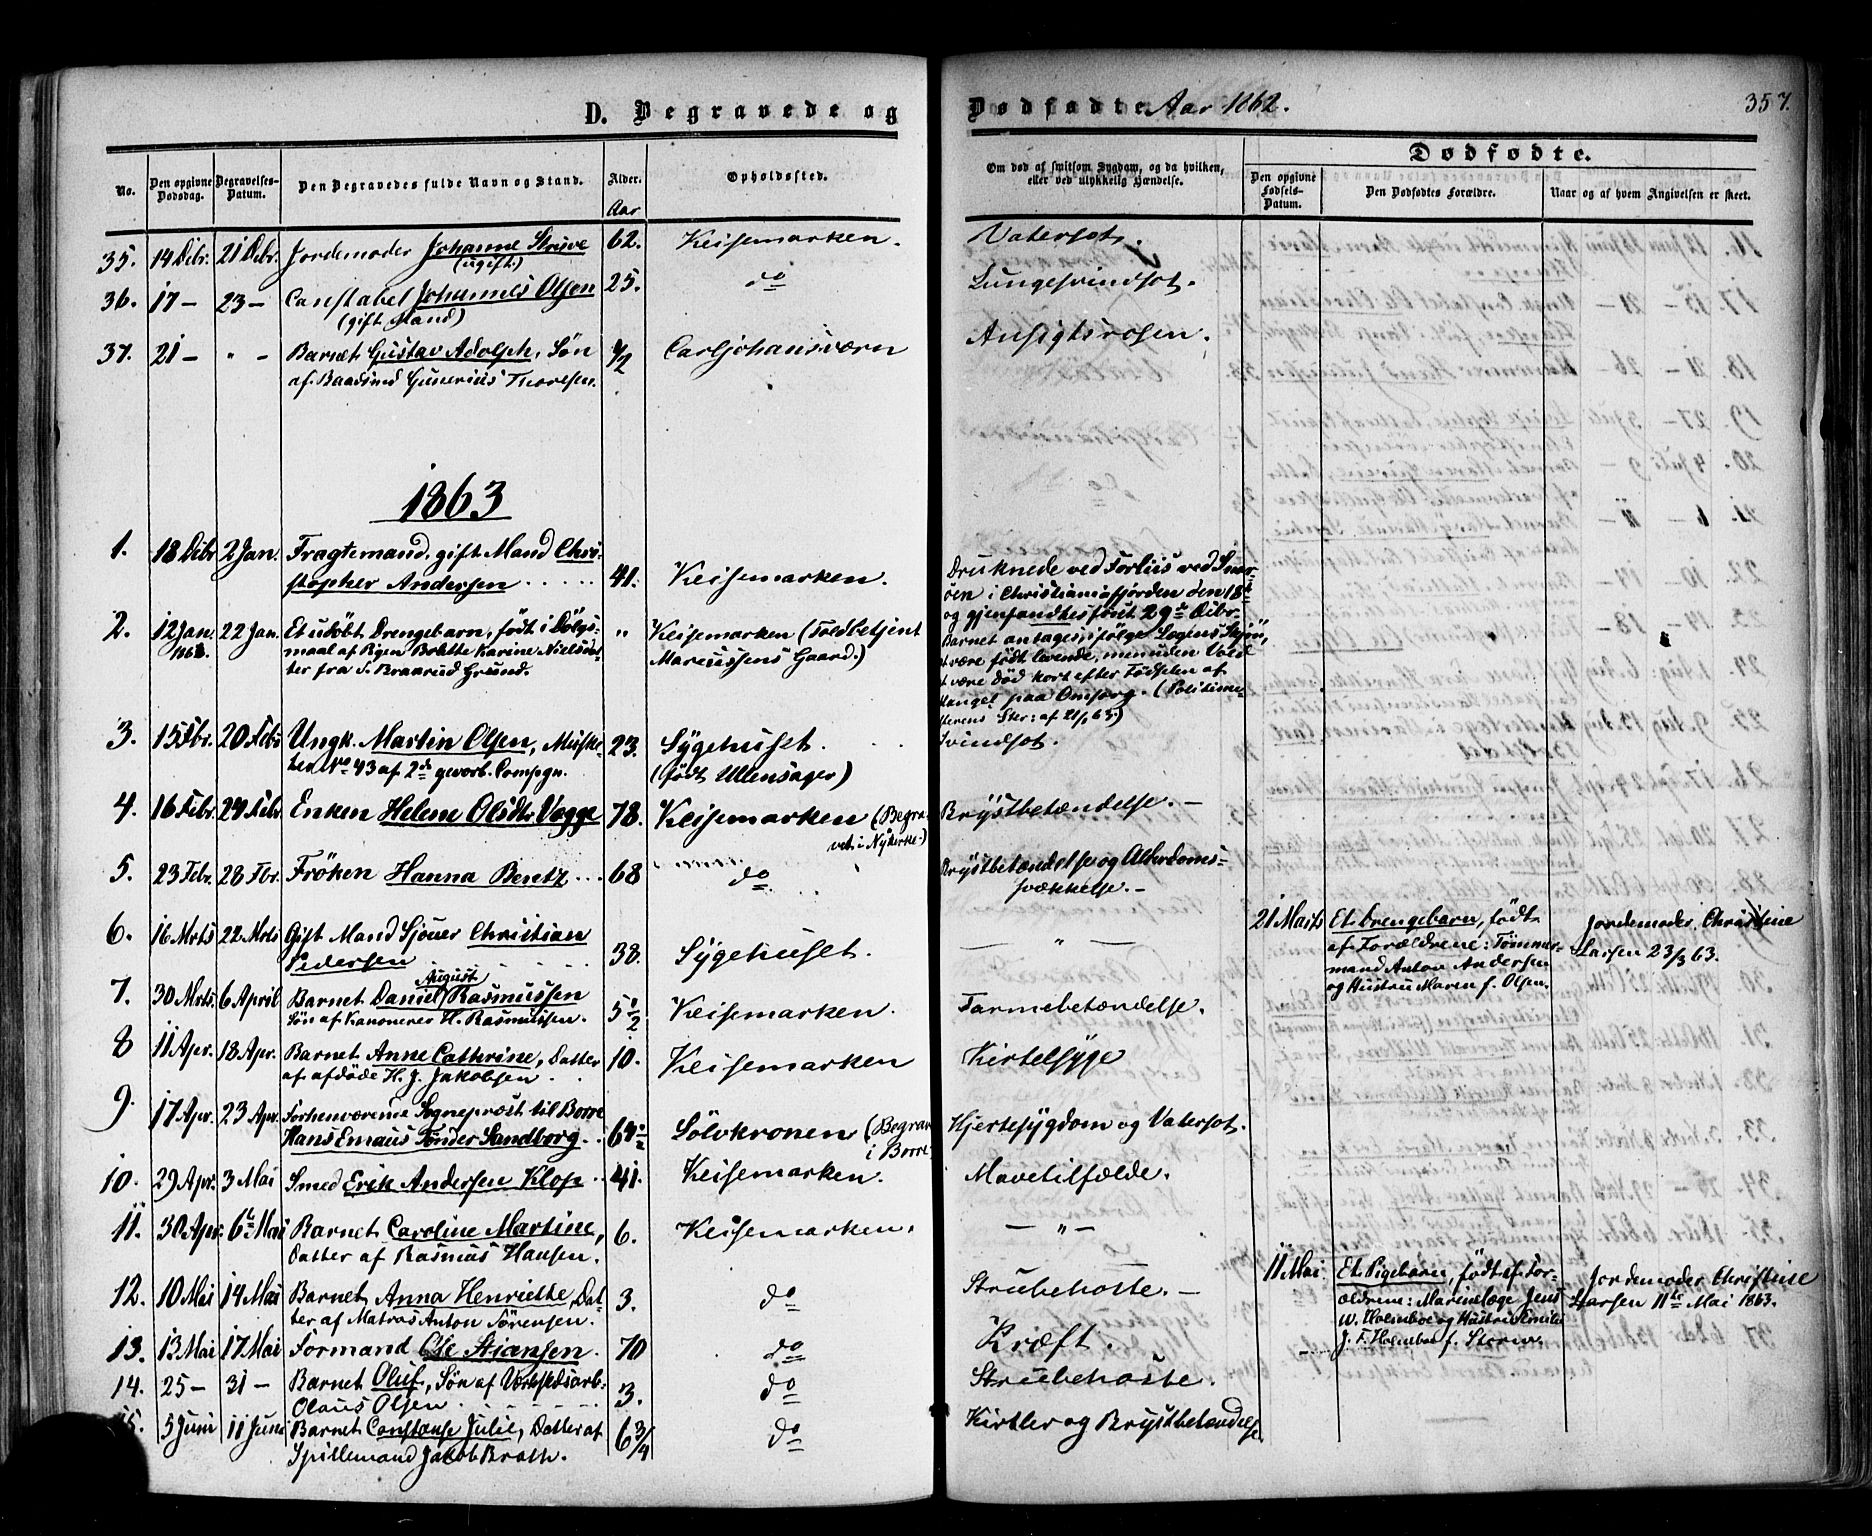 D. Begravede og
Dødfødte Aar 1862.
357.
No.
Den opgivne Dødsdag.
Begravelses-Datum.
Den Begravedes fulde Navn og Stand.
Alder. Aar
Opholdssted.
Om død af smitsom Sygdom, og da hvilken, eller ved ulykkelig Hændelse.
Dødfødte.
Den opgivne Fødsels-Datum.
Den Dødfødtes Forældre.
Naar og af hvem Angivelsen er skeet.
35. 14 Dcbr. 21 Dcbr. Jordemoder Johanne Struve 62. Keisemarken. Vatersot.
(ugift.)
36. 17 — 23 — Constabel Johannes Olsen 25. do Lungesvindsot.
(gift Mand)
37. 21 — " — Barnet Gustav Adolph, Søn 1/2 Carljohansværn Ansigtsrosen.
af Baadsmd Gunerius Thoresen.
1863
1. 18 Dcbr 2 Jan. Fragtemand, gift Mand Chri-
stopher Andersen 41. Keisemarken.
Druknede ved Forliis ved Snar-
øen i Christianiafjorden den 18de
og gjenfandtes først 29de Dcbr.
2. 12 Jan. 1863. 22 Jan. Et udøbt Drengebarn, født i Dølgs-
maal af Pigen Brotte Karine Nielsdat-
ter fra S. Braarud Grund.
" Keisemarken (Toldbetjent
Mariussens Gaard.)
Barnet antages, ifølge Lægens Skjøn,
at være født levende, men uden Vold
at være død kort efter Fødselen af
Mangel paa Omsorg. (Politime-
sterens Skr: af 21/1 63.)
3. 15 Fbr. 20 Febr Ungk. Martin Olsen, Muske- 23. Sygehuset. Svindsot.
ter No 43 af 2de gevorb. Compgn. (født Ullensager)
4. 16 Febr. 24 Febr. Enken Helene Olsdtr Vegge 78. Keisemarken (Begra- Brystbetændelse. —
vet i Nykirke.)
5. 23 Febr. 28 Fbr. Frøken Hanna Bentz 68 do Brystbetændelse og Alderdoms-
svækkelse. —
6. 16 Mrts 22 Mrts Gift Mand Sjouer Christian
Pedersen 38. Sygehuset. — " —
21 Marts Et Drengebarn, født
af Forældrene: Tømmer-
mand Anton Andersen
og Hustru Maren f. Olsen.
Jordemoder Christine
Larsen 23/3 63.
7. 30 Mrts. 6 April Barnet Daniel August Rasmussen
Søn af Kanoneer H. Rasmussen. 5 1/2 Keisemarken. Tarmebetændelse.
8 11 Apr. 18 Apr. Barnet Anne Cathrine, Datter 10. Keisemarken Kirtelsyge
af afdøde H. J. Jakobsen
9. 17 Apr. 23 Apr. Forhenværende Sognepræst til Borre
Hans Emaus Tønder Sandborg 64 1/2 Sølvkronen (Begrav. Hjertesygdom og Vatersot.
i Borre
10. 29 Apr. 3 Mai Smed Erik Andersen Klop 41. Keisemarken. Mavetilfælde.
11. 30 Apr. 6te Mai Barnet Caroline Martine, 6. Keisemarken. — " —
Datter af Rasmus Hansen.
11 Mai Et Pigebarn, født af For-
ældrene: Marinelæge Jens
W. Holmboe og Hustru Emilie
J. F. Holmboe f. Storm.
Jordemoder Christine
Larsen 11te Mai 1863.
12. 10 Mai 14 Mai Barnet Anna Henriette, Dat- 3. do Strubehoste. —
ter af Matros Anton Sørensen.
13. 13 Mai 17 Mai Formand Ole Stiansen. 70 do Kræft.
14. 25 — 31 — Barnet Oluf, Søn af Værkstedsarb. 3. do Strubehoste.
Olaus Olsen.
15. 5 Juni 11 Juni Barnet Constanse Julie, Datter af 6 3/4 do Kirtler og Brystbetændelse
Spillemand Jakob Brath.